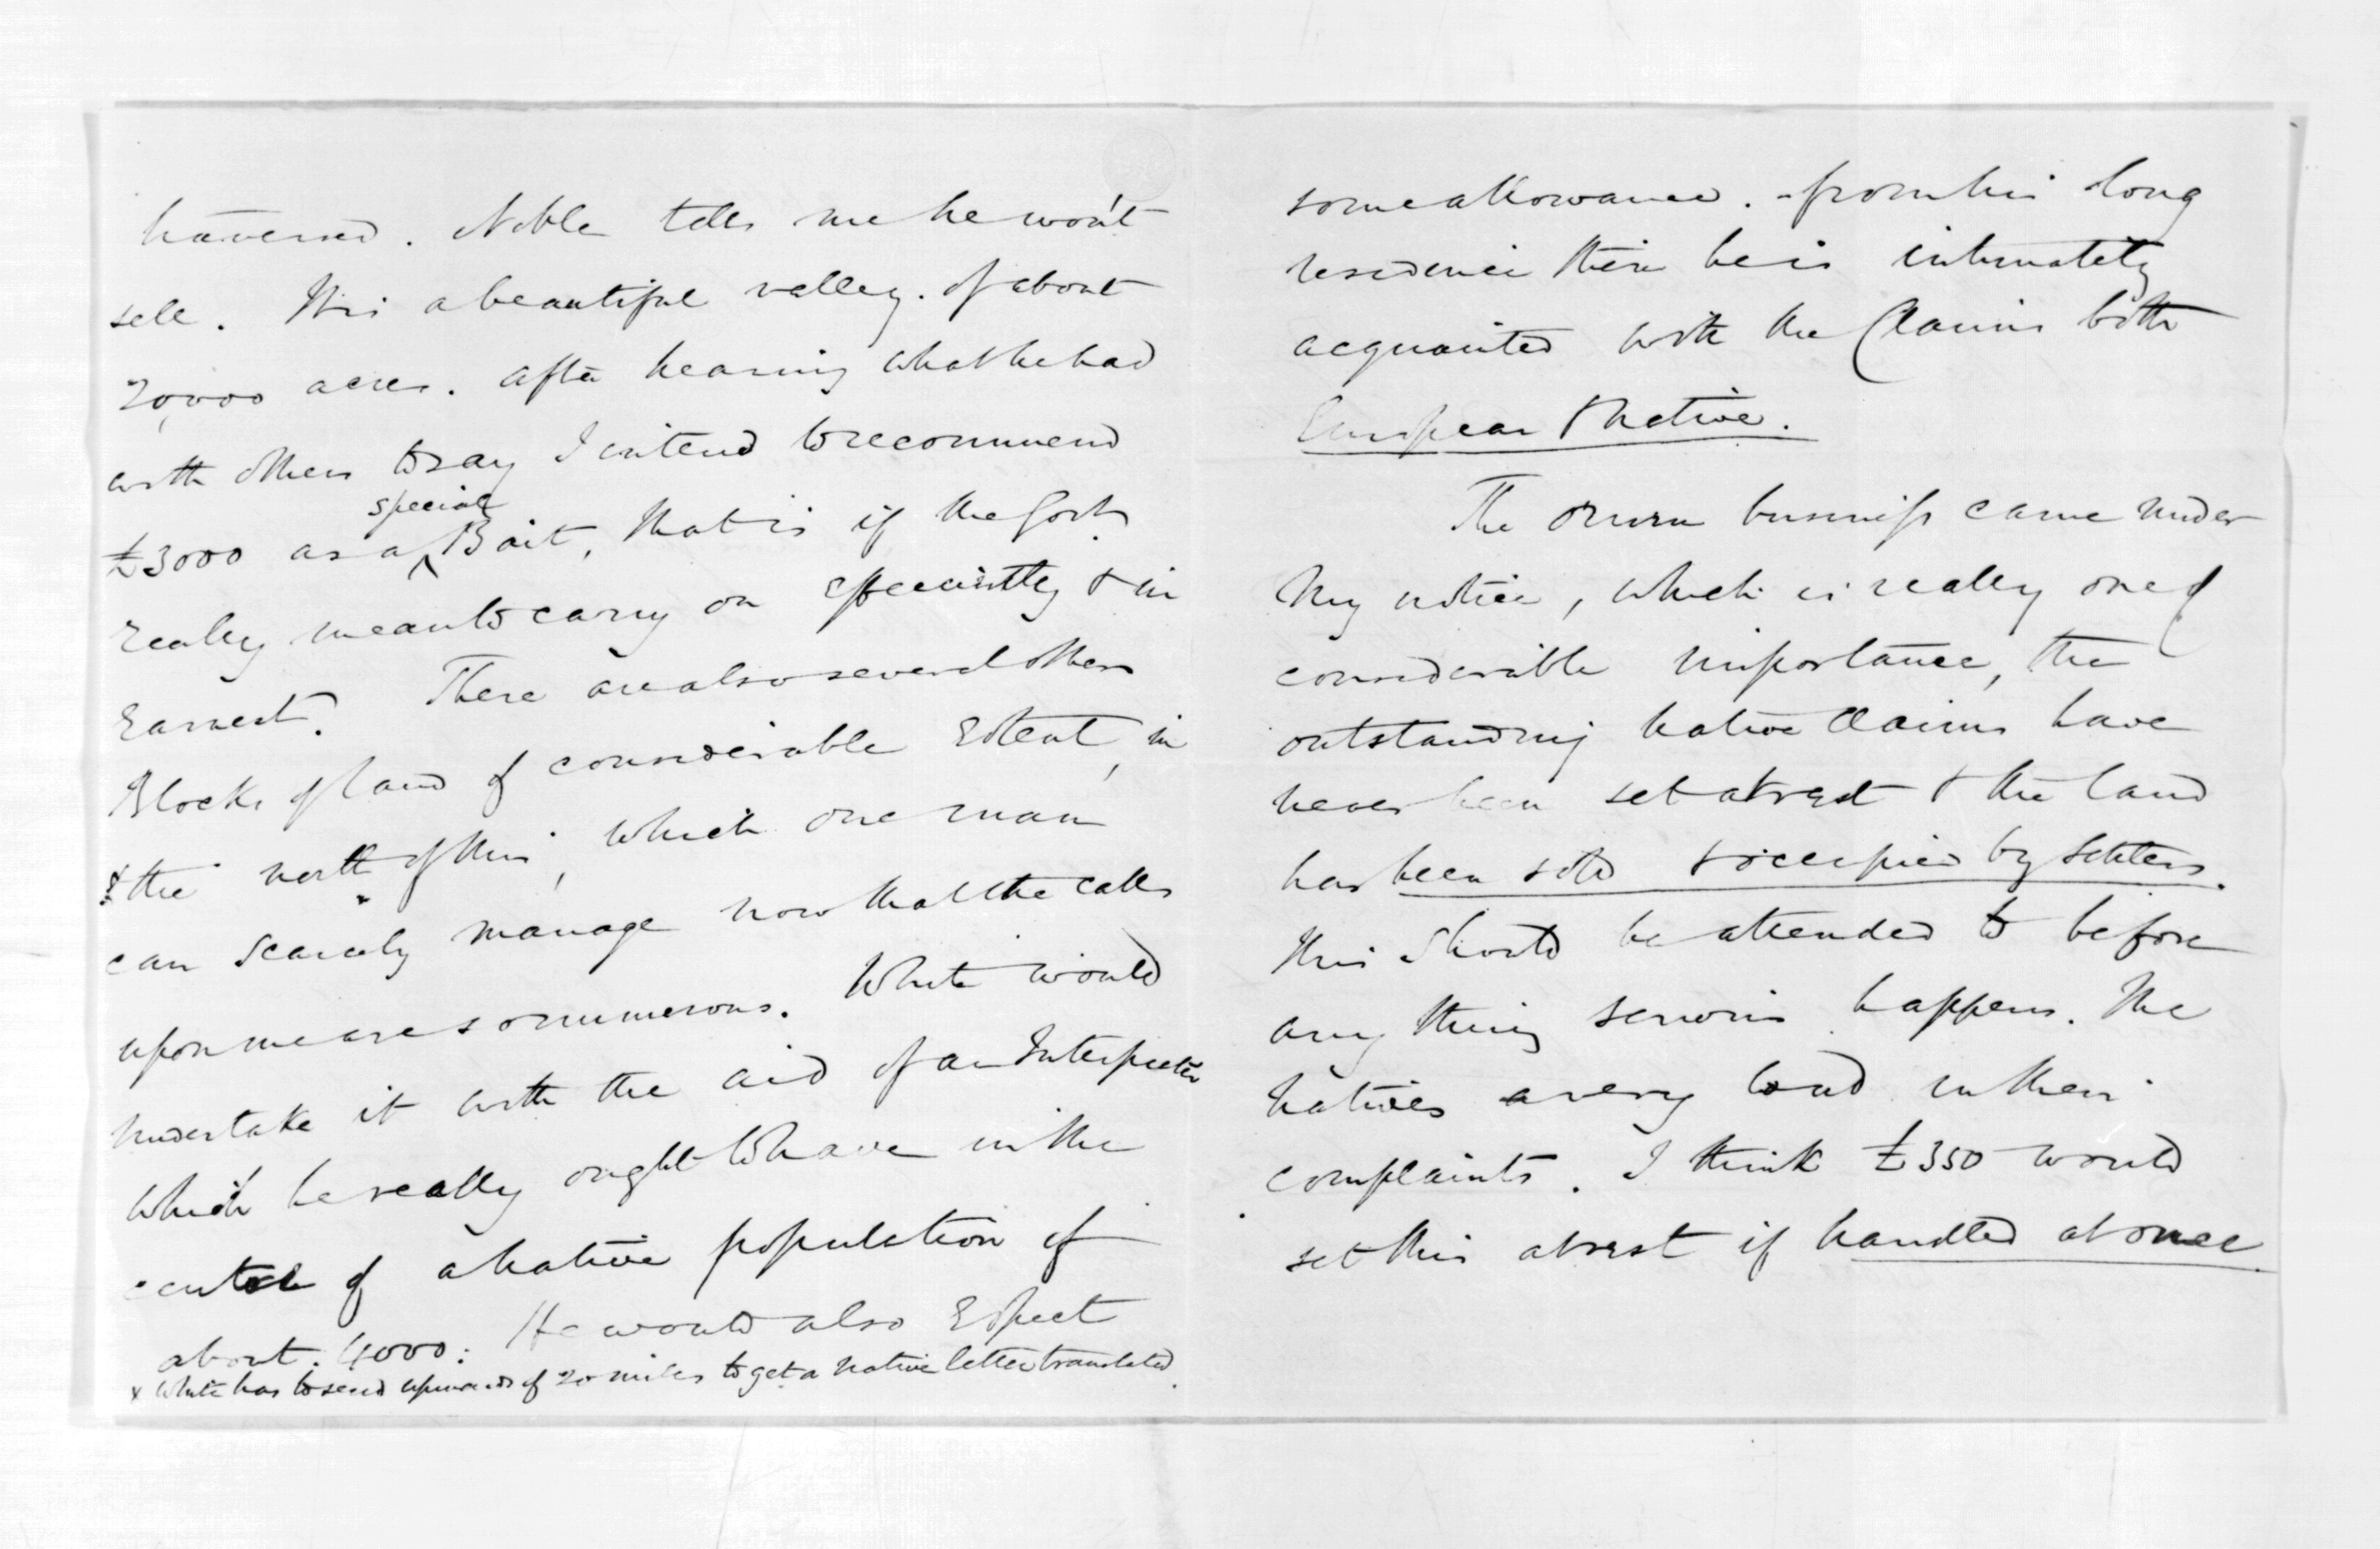 traversed. Noble tells me he won't
sell. It is a beautiful valley. of about
20,000 acres. after hearing what he had
with others to say I intend to recommend
£3000 as a special Bait, that is if the Govt.
really mean to carry on efficiently & in
Earnest. There are also several other
Blocks of land of considerable Extent, in
& the north of this, which one man
can scarcely manage now that the calls
upon me are so numerous. White would
undertake it with the aid of an Interpreter
which he really ought to have in the
center of a native population of
about 4000: He would also Expect
x White has to send upwards of 20 miles to get a native letter translated.
some allowance. - from his long
residence there he is intimately
acquainted with the Claims both
European & Native.
The Oruru business came under
my notice, which is really one of
considerable importance, the
outstanding native Claims have
never been set at rest & the land
has been sold & occupied by settlers.
This should be attended to before
any thing serious happens. The
natives a very loud in their
complaints. I think £350 would
set this at rest if handled at once